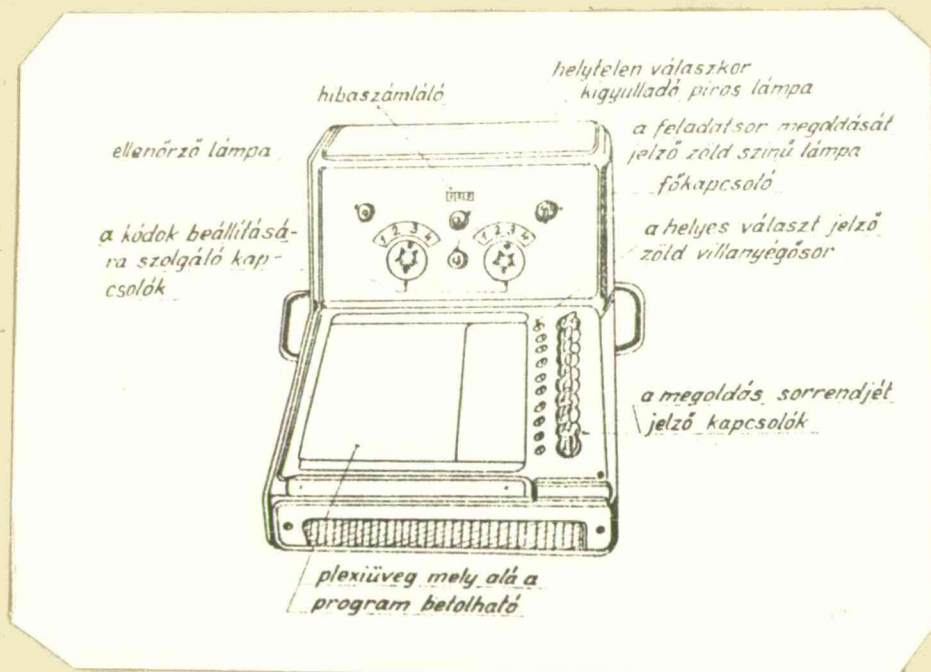 helytelen válaszkor
kigyulladó piros lámpa
hibaszámláló
a feladatsor megoldását
jelző zöld szinű lámpa
ellenőrző lámpa
főkapcsoló
a kódok beállításá-
ra szolgáló kap-
csolók
a helyes választ jelző
zöld villanyégősor
1 2 3 4
1 2 3 4
a megoldás sorrendjét
jelző kapcsolók
plexiüveg mely alá a
program betolható